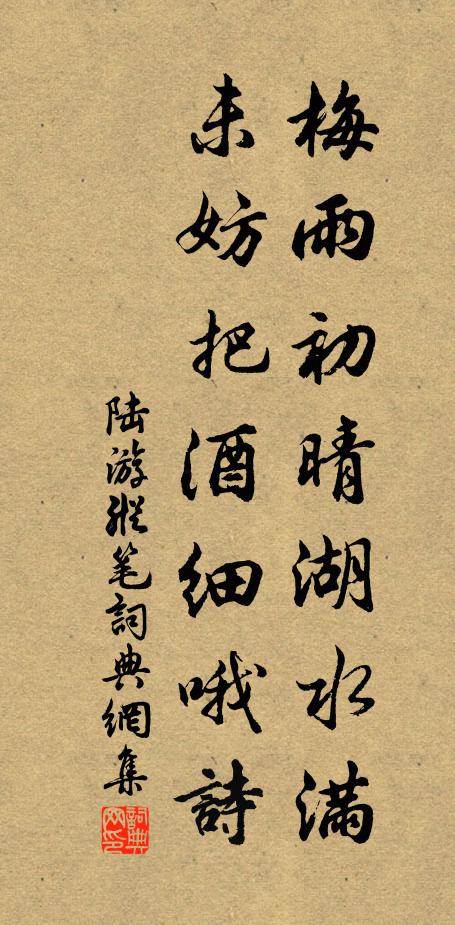 梅雨初晴湖水满
未妨把酒细哦詩
陆游縱笔詞典網集
詞典网印